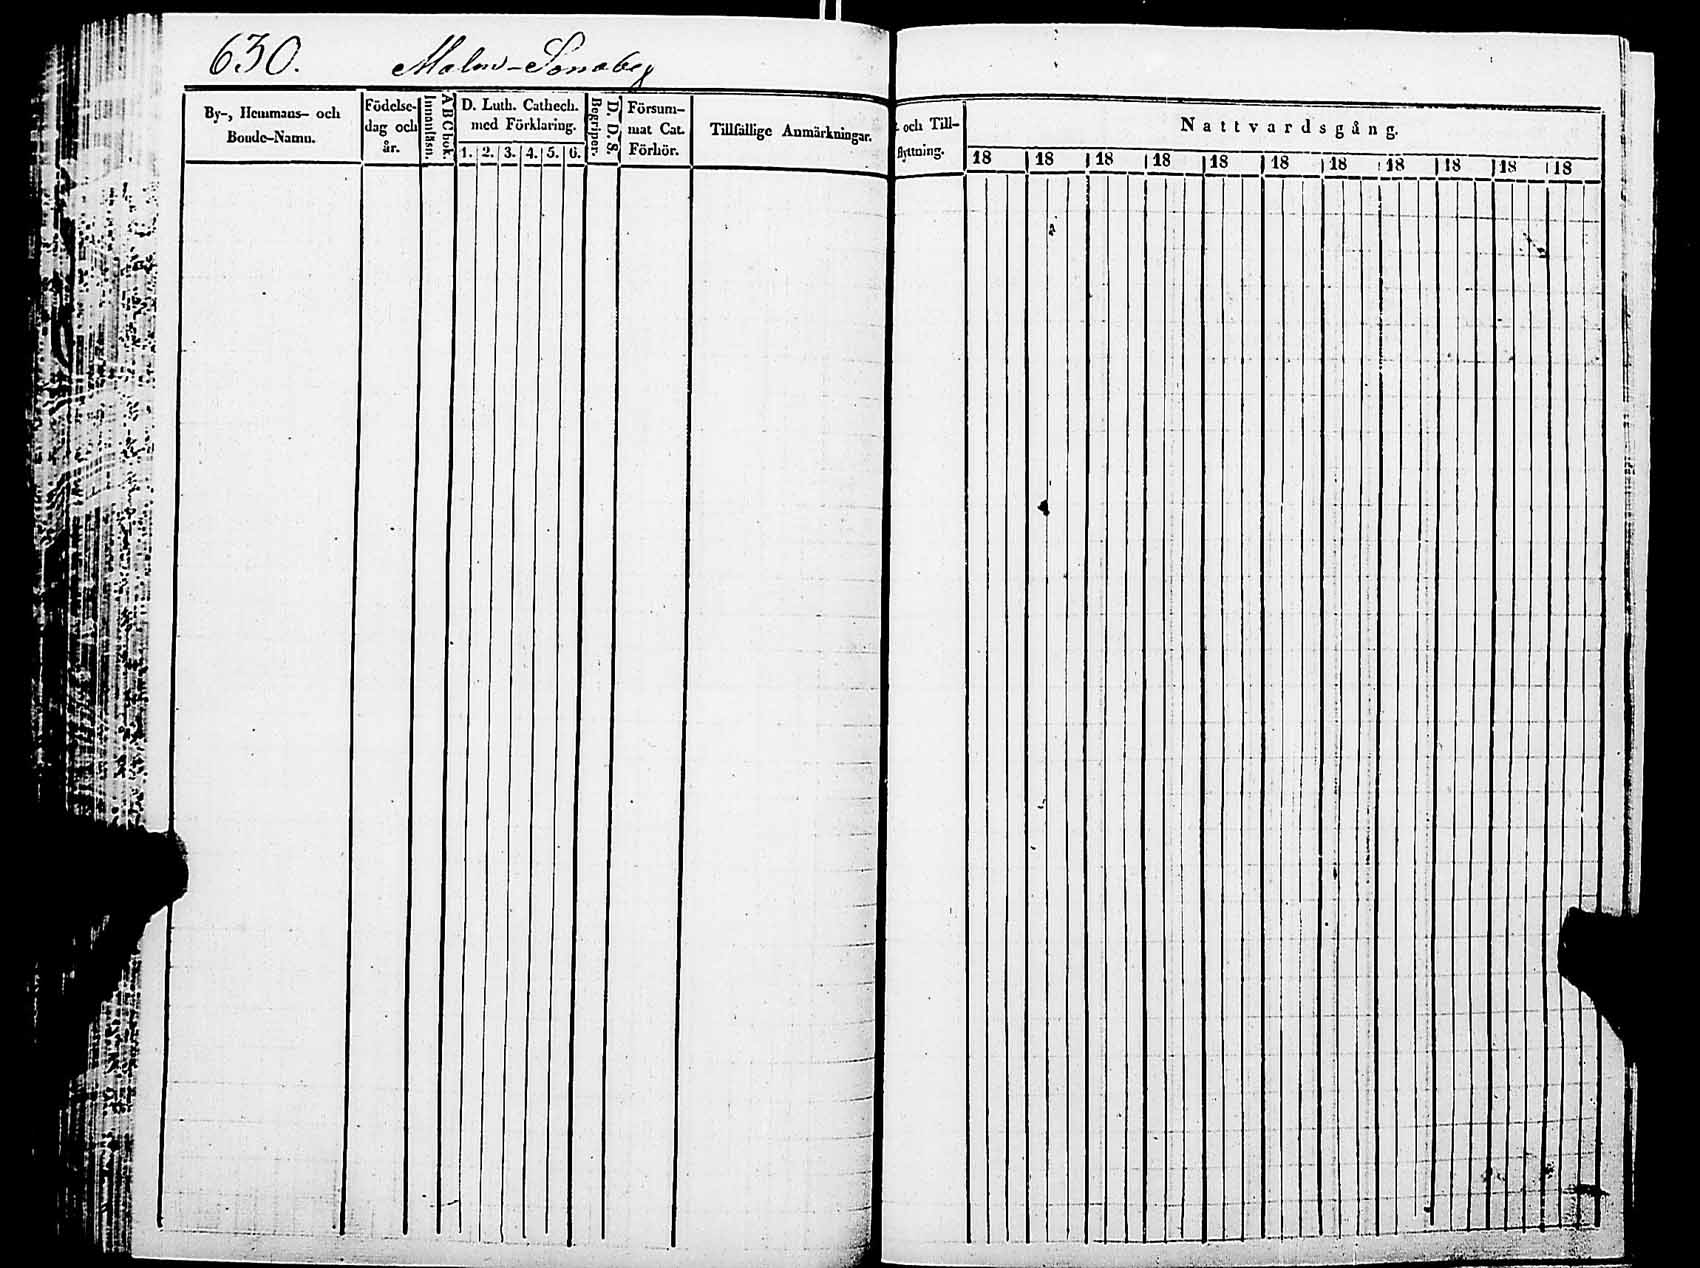 630. Malmö-Sonaby
By-, Hemmans- och
Bonde-Namn.
Födelse-
dag och
år.
Innanläsn.
ABC bok.
D. Luth. Cathech.
med Förklaring.
1. 2. 3. 4. 5. 6.
D. D. S.
Begriper.
Försum-
mat Cat.
Förhör.
Tillfällige Anmärkningar.
och Till-
flyttning.
Nattvardsgång.
18 18 18 18 18 18 18 18 18 18 18